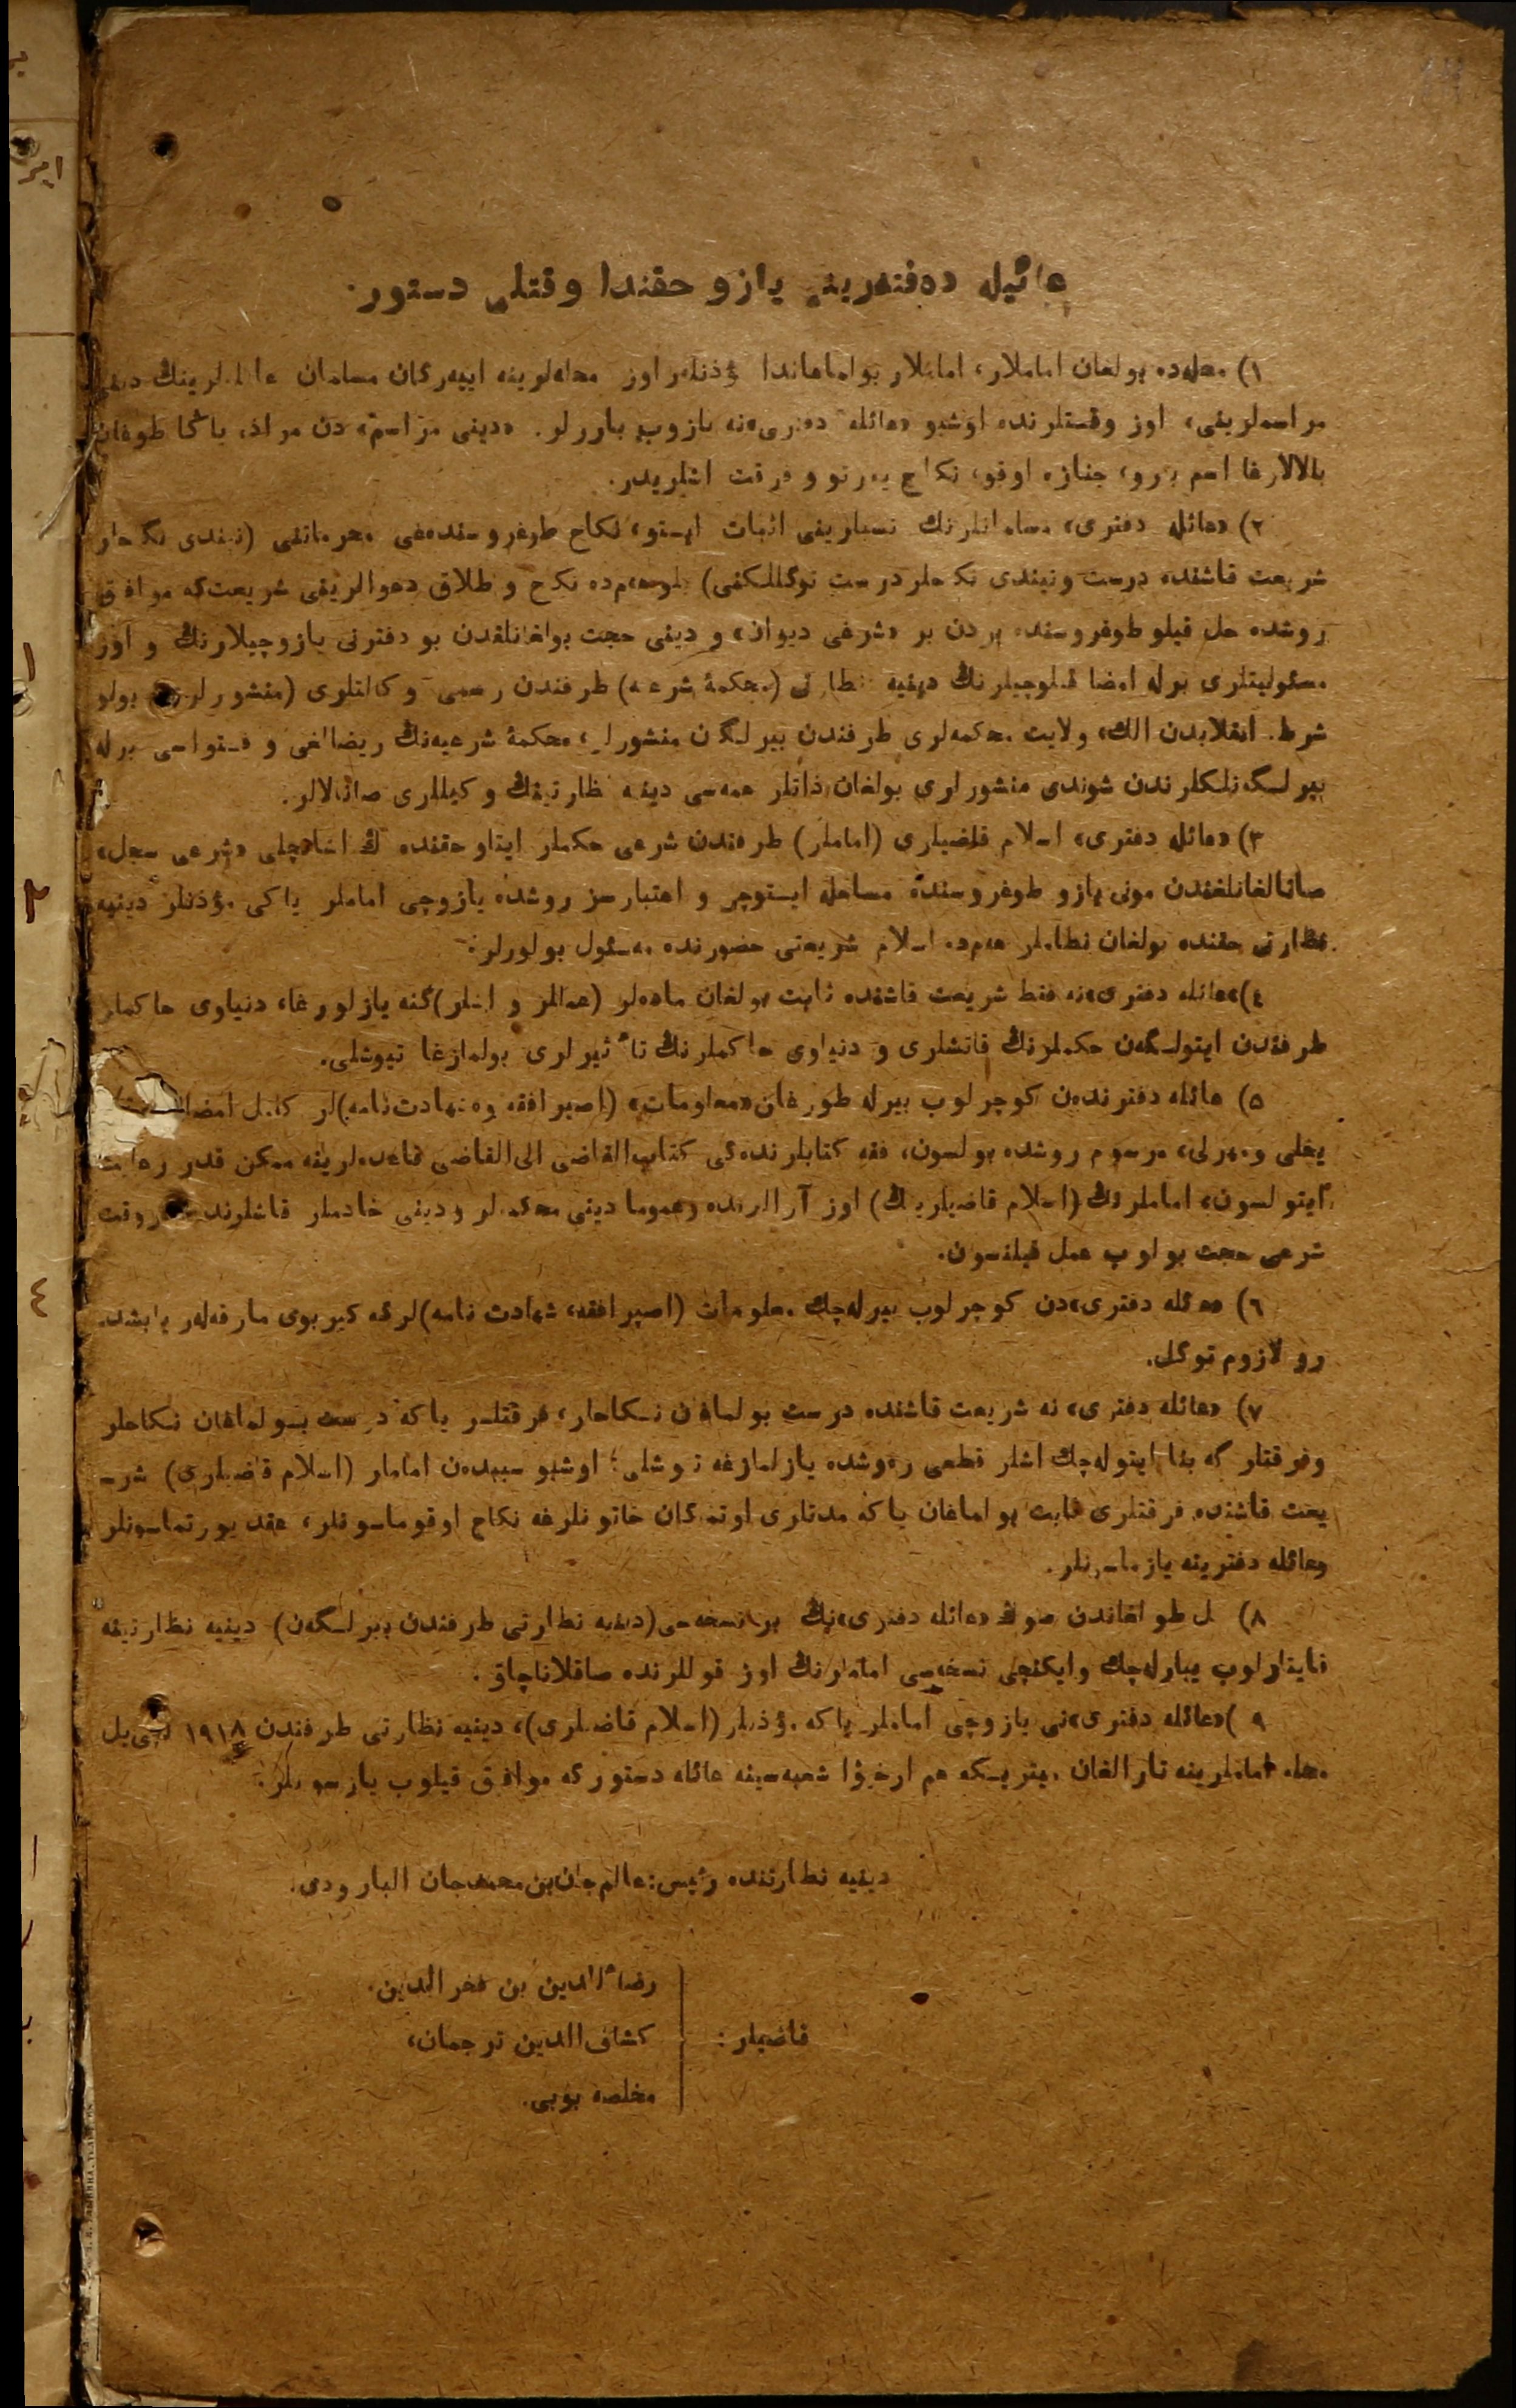 عائیله دەفتەرینی یازو حقندا وقتلی دستور.
۱) محله‌ده بولغان اماملار، اماملار بولماغاندا مؤذنلەر اوز محله‌لرینه اییەرگان مسلمان عائله‌لرینڭ دینی
مراسملرینی، اوز وقتلرنده اوشبو «عائله دفتری»نه یازوب باررلر. «دینی مراسم» دن مراد، یاڭا طوغان
بالالارغا اسم بیرو، جنازه اوقو، نکاح یورتو و فرقت اشلریدر.
۲) «عائله دفتری» مسلمانلرنڭ نسبلرینی اثبات ایستو، نکاح طوغروسنده‌غی محرماتنی (نیندی نکاحلر
شریعت قاشنده درست ونیندی نکاحلر درست توگللکنی) بلو هم‌ده نکاح و طلاق دعوالرینی شریعت‌که موافق
روشده حل قیلو طوغروسنده بردن بر «شرعی دیوان» و دینی حجت بولغانلقدن بو دفترنی یازوچیلارنڭ و اوز
مسئولیتلری برله امضا قیلوچیلرنڭ دینیه نظارتی (محکمۀ شرعیه) طرفندن رسمی وکالتلری (منشورلری) بولو
شرط. انقلابدن الك، ولایت محکمه‌لری طرفندن بیرلگان منشورلر، محکمۀ شرعیه‌نڭ ریضالغی و فتواسی برله
بیرلگەنلکلرندن شوندی منشورلری بولغان ذاتلر همه‌سی دینیه نظارتینڭ وکیللری صانالالر.
۳) «عائله دفتری» اسلام قاضیلری (اماملر) طرفندن شرعی حکملر ایتلو حقنده اڭ اشانچلی «شرعی سجل»
صانالغانلغندن مونی یازو طوغروسنده مساهله ایستوچی و اعتبارسز روشده یازوچی اماملر یاکی مؤذنلر دینیه
نظارتی حقنده بولغان نظاملر هم‌ده اسلام شریعتی حضورنده مسئول بولورلر.
٤) «عائله دفتری»نه فقط شریعت قاشنده ثابت بولغان ماده‌لر (عمللر و اشلر)گنه یازلورغا، دنیاوی حاکملر
طرفندن ایتولگەن حکملرنڭ قاتشلری و دنیاوی حاکملرنڭ تأثیرلری بولمازغا تیوشلی.
۵) عائله دفترندەن کوچرلوب بیرله طورغان «معلومات» (اصپرافقه وشهادت‌نامه)لر کامل امضا
یغلی ومهرلی، مرسوم روشده بولسون، فقه کتابلرنده‌گی کتاب‌القاضی الی‌القاضی قاعده‌لرینه ممکن قدر رعایت
ایتولسون، اماملرنڭ (اسلام قاضیلرینڭ) اوز آرالرنده وعموما دینی محکمه‌لر ودینی خادملر قاشلرنده هر وقت
شرعی حجت بولوب عمل قیلنسون.
٦) «عائله دفتری»دن کوچرلوب بیرلەچك معلومات (اصپرافقه، شهادت نامه)لرگه گیربوی مارقه‌لەر یابشد-
رو لازوم توگل.
۷) «عائله دفتری» نه شریعت قاشنده درست بولماغان نکاحلر، فرقتلر یاکه درست بولماغان نکاحلر
وفرقتلرگه بنا ایتولەچك اشلر قطعی رەوشده یازلمازغه تیوشلی؛ اوشبو سببدەن اماملر (اسلام قاضیلری) شر-
یعت قاشنده فرقتلری ثابت بولماغان یاکه مدتلری اوتمەگان خاتونلرغه نکاح اوقوماسونلر، عقد یورتماسونلر
وعائله دفترینه یازماسونلر.
۸) یل طولغاندن صوڭ «عائله دفتری»نڭ بر نسخه‌سی (دینیه نظارتی طرفندن بیرلگەن) دینیه نظارتینه
قایتارلوب یبارلەچك وایکنچی نسخه‌سی اماملرنڭ اوز قوللرنده صاقلاناچاق.
۹) «عائله دفتری»نی یازوچی اماملر یاکه مؤذنلر (اسلام قاضیلری)، دینیه نظارتی طرفندن ۱۹۱۸ نچی یل
محله اماملرینه تارالغان میتریسکه هم ارخیوا شعبه‌سینه عائله دستورگه موافق قیلوب یازسونلر.
دینیه نظارتنده رئیس: عالم‌جان‌بن‌محمدجان البارودی.
رضاءالدین بن فخرالدین.
قاضیلر: کشاف‌الدین ترجمان،
مخلصه بوبی.